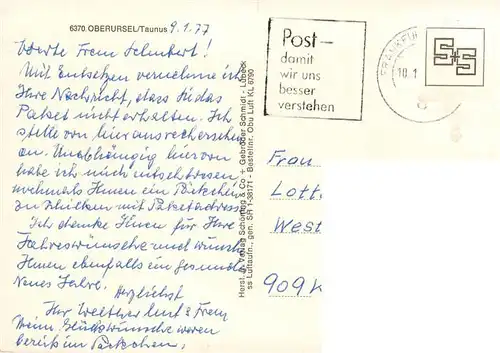 6370 OBERURSEL/Taunus 9.1.77
Werte Frau Schubert!
Mit Entsetzen vernehme ich
Ihre Nachricht, dass Sie das
Paket nicht erhalten. Ich
stelle von hier aus
an. Unabhängig hiervon
habe ich mich entschlossen,
nochmals Ihnen ein Päckchen
zu schicken mit
Ich danke Ihnen für Ihre
Jahreswünsche und wünsche
Ihnen ebenfalls ein gesundes
Neues Jahr.
Herzlichst
Ihr Walther und Frau
Meine Glückwünsche waren
bereits im Päckchen.
Herst. u. Verlag Schöning & Co. + Gebrüder Schmidt - Lübeck
ss Luftaufn., gen. SH 1-38171 - Bestellnr. Obu Luft KL 6790
Post –
damit
wir uns
besser
verstehen
FRANKFU
10.1
8
S+S
Frau
Lott.
West
909K